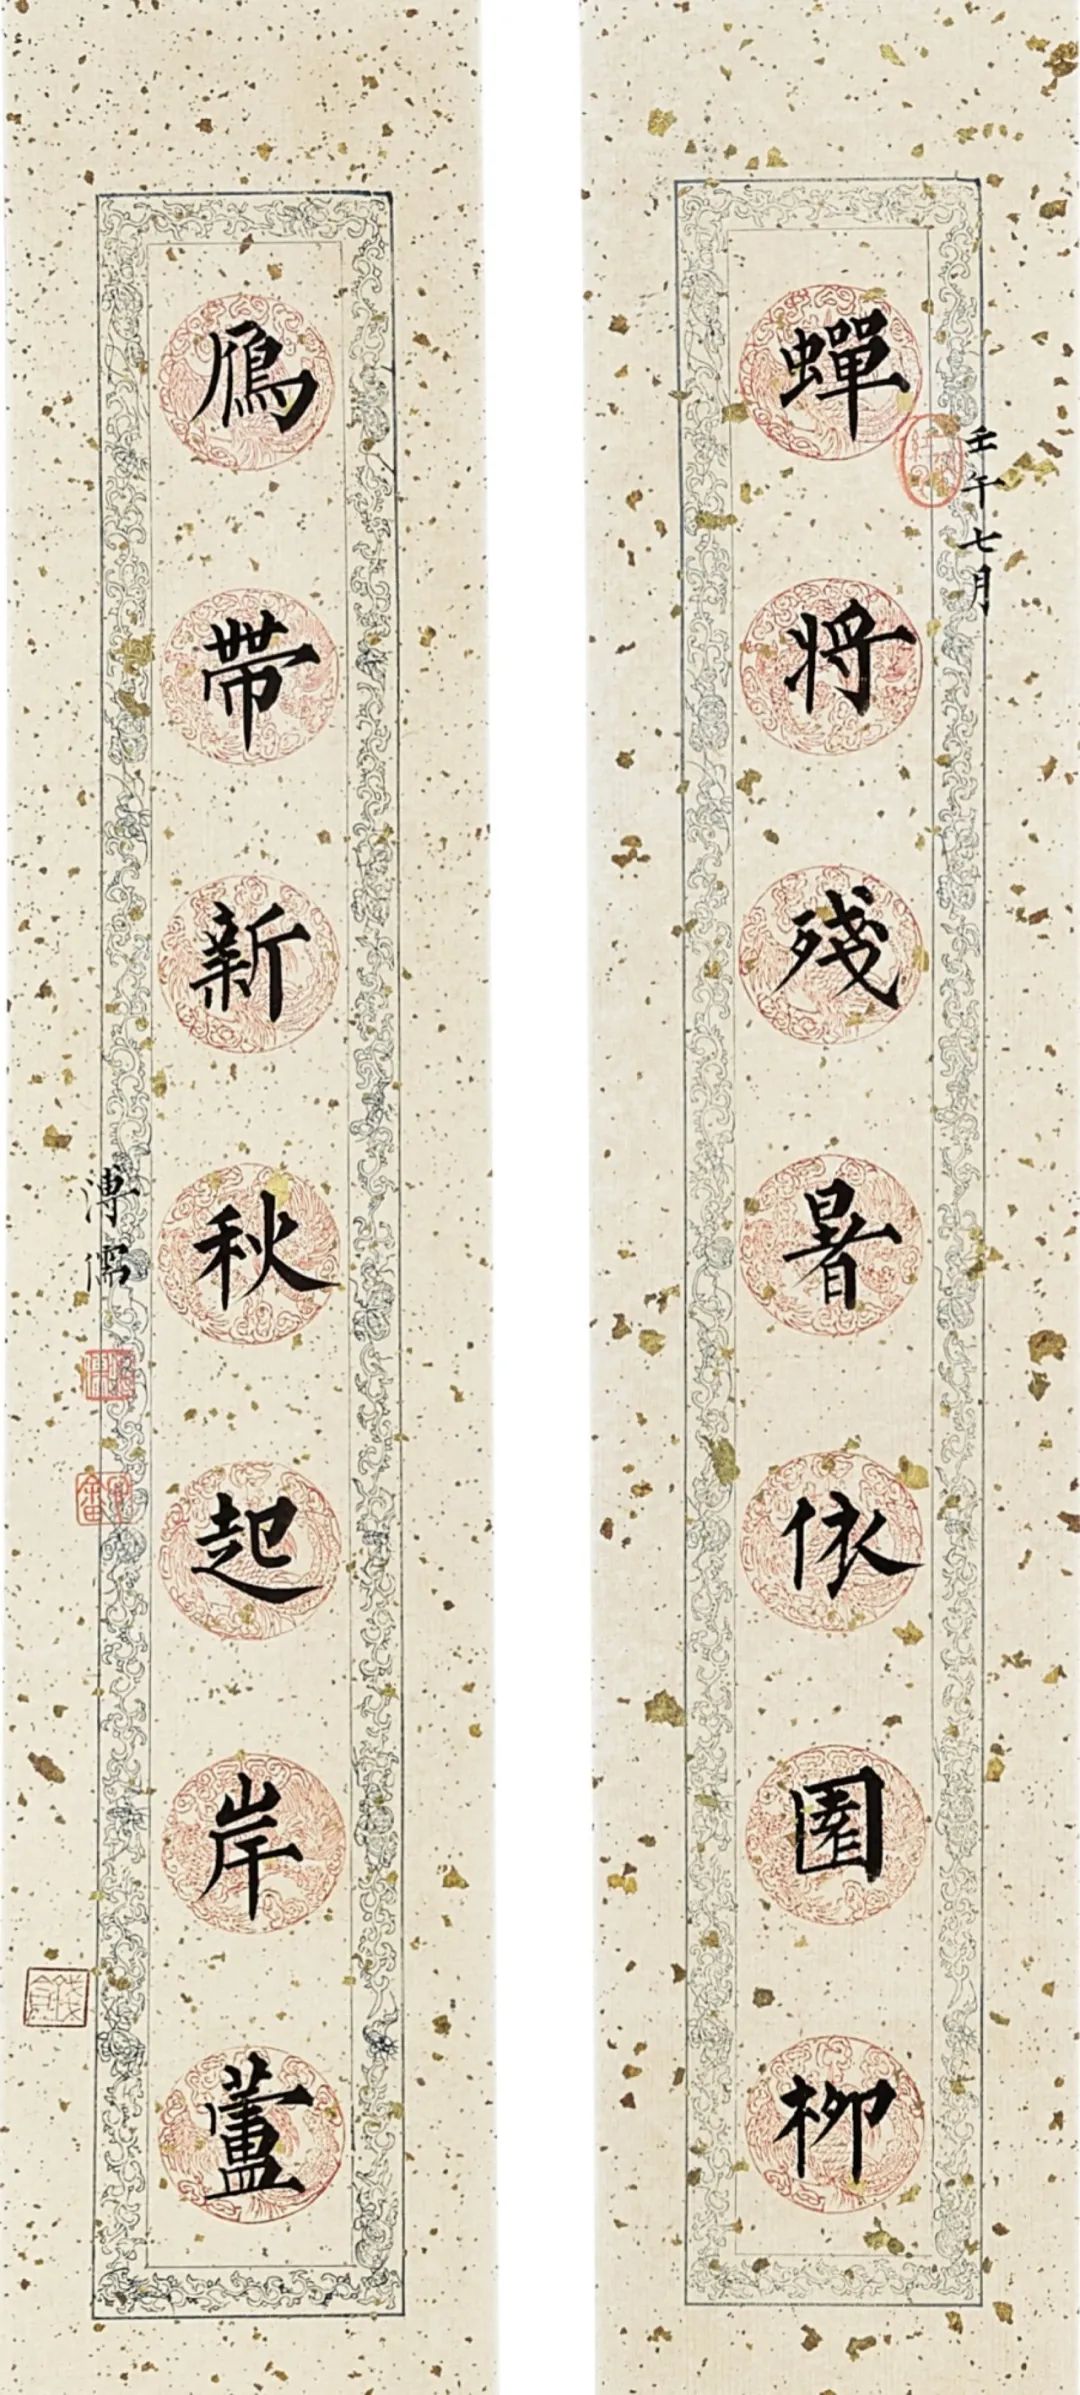 壬午七月
蟬將殘暑依園柳
鴈帶新秋起岸蘆
溥儒